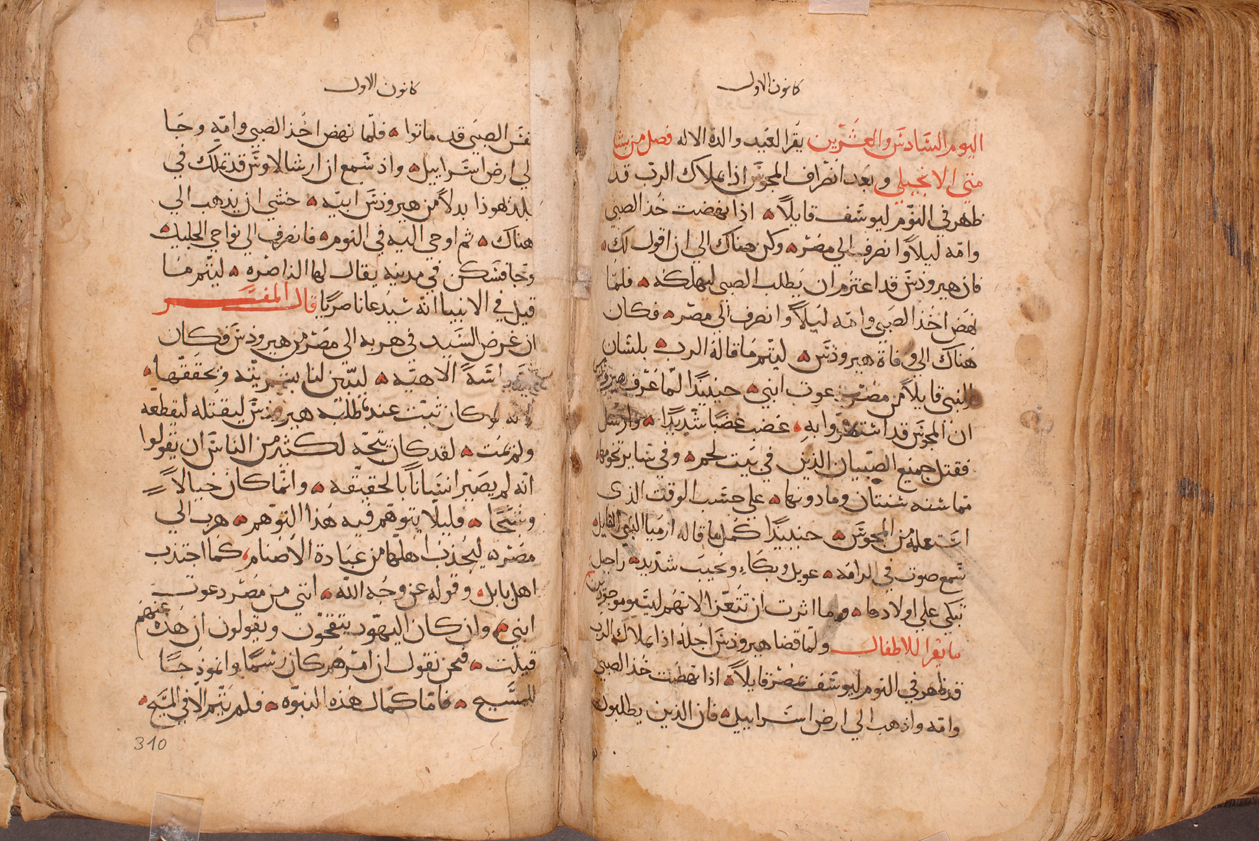 كانون الاول
اليوم السادس والعشرين يقرا لعيد والدة الاله فصل من بشارة
متي الانجيلي وبعد انصراف المجوس اذا بملاك الرب قد
ظهر في النوم ليوسف قايلاً اذا نهضت خذ الصبي
وامه ليلاً وانصرف الى مصر وكن هناك الى ان اقول لك
فان هيرودس قد اعتزم ان يطلب الصبي ليهلكه فلما
نهض اخذ الصبي وامه ليلاً وانصرف الى مصر فكان
هناك الى وفاة هيرودس ليتم ما قاله الرب بلسان
النبي قايلاً من مصر دعوت ابني حينيذٍ لما عرف هيرودس
ان المجوس قد استهزوا به غضب غضبًا شديدًا وارسل
فقتل جميع الصبيان الذين في بيت لحم وفي ساير تخومها
مما سنه سنتان وما دونها على حسب الوقت الذي
استعلمه من المجوس حينيذٍ كمل ما قاله ارميا النبي القايل
سمع صوت في الرامه عويل وبكاء ونحيب شديد راحيل
تبكي على اولادها وما اثرت ان تتعزا لانهم ليسو موجودين
ما يقرا للاطفال ولما قضا هيرودس اجله اذا بملاك الرب
قد ظهر في النوم ليوسف بمصر قايلاً اذا نهضت خذ الصبي
وامه واذهب الى ارض اسراييل فان الذين يطلبون
كانون الاول
نفس الصبي قد ماتوا فلما نهض اخذ الصبي وامه وجا
الى ارض اسراييل واذ سمع ان ارشالاوس قد تملك في
بلد يهوذا بدلاً من هيرودس ابيه خشي ان يذهب الى
هناك ثم اوحي اليه في النوم فانصرف الى نواحي الجليل
وجا فسكن في مدينه يقال لها الناصره ليتم ما
قيل في الانبيا انه سيدعا ناصريًا قال المفسر
ان غرض السيد في هربه الى مصر من هيرودس فكان
سياسة الاهيه ليبين لنا بشريته وتحققها
لانه لو كان ثبت عندما طلبه هيرودس ليقتله ليقطعه
ولم يمت لقد كان يتجه لكثير من الناس ان يقولوا
انه لم يصير انسانًا بالحقيقه وانما كان خيالاً
وشبحًا فليلا يتوهم فيه هذا التوهم هرب الى
مصر ليجذب اهلها من عبادة الاصنام كما اجتذب
اهل بابل وقوله عن وجه الله انني من مصر دعوت
ابني وان كان اليهود يتقحون ويقولون ان هذه عنهم
قيلت فنحن نقول ان امرهم كان رسمًا وانموذجًا
للمسيح فاما كمال هذه النبوه فلم يتم الا في المسيح
310